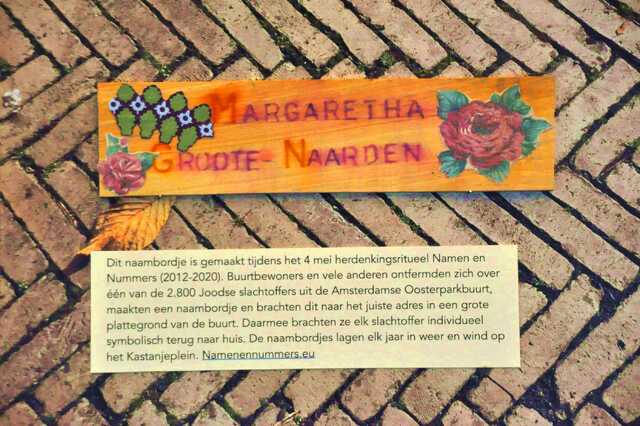 MARGARETHA
GROOTE-NAARDEN
Dit naambordje is gemaakt tijdens het 4 mei herdenkingsritueel Namen en
Nummers (2012-2020). Buurtbewoners en vele anderen ontfermden zich over
één van de 2.800 Joodse slachtoffers uit de Amsterdamse Oosterparkbuurt,
maakten een naambordje en brachten dit naar het juiste adres in een grote
plattegrond van de buurt. Daarmee brachten ze elk slachtoffer individueel
symbolisch terug naar huis. De naambordjes lagen elk jaar in weer en wind op
het Kastanjeplein. Namenennummers.eu